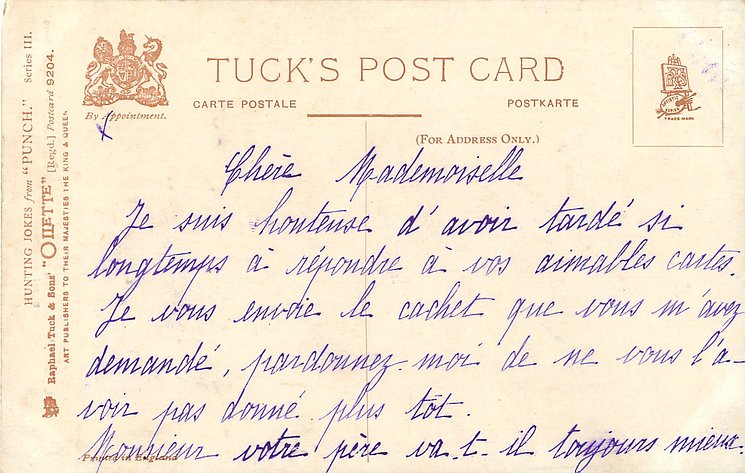 TUCK'S POST CARD
By Appointment.
CARTE POSTALE
POSTKARTE
(FOR ADDRESS ONLY.)
TRADE MARK
HUNTING JOKES from "PUNCH." Series III.
Raphael Tuck & Sons' "OILETTE" [Regd.] Postcard 9204.
ART PUBLISHERS TO THEIR MAJESTIES THE KING & QUEEN
Chère Mademoiselle
Je suis honteuse d'avoir tardé si
longtemps à répondre à vos aimables cartes.
Je vous envoie le cachet que vous m'avez
demandé, pardonnez-moi de ne vous l'a-
voir pas donné plus tôt.
Monsieur votre père va-t-il toujours mieux.
Printed in England